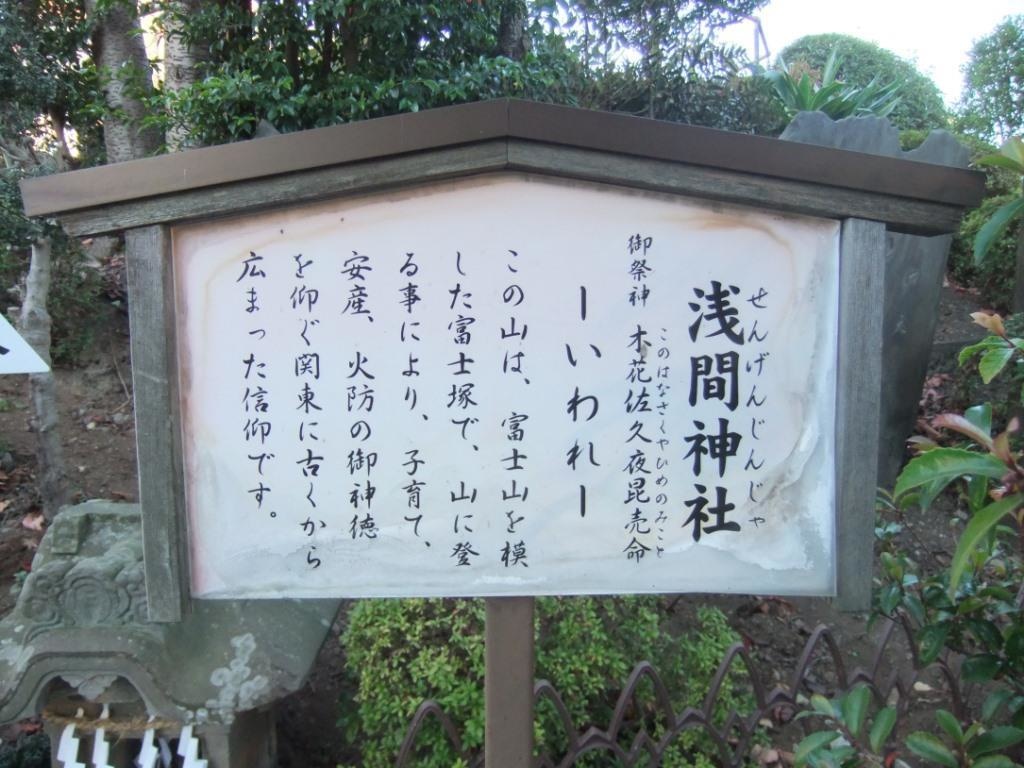 せんげんじんじゃ
浅間神社
御祭神 木花佐久夜昆売命
このはなさくやひめのみこと
ーいわれー
この山は、富士山を模
した富士塚で、山に登
る事により、子育て、
安産、火防の御神徳
を仰ぐ関東に古くから
広まった信仰です。